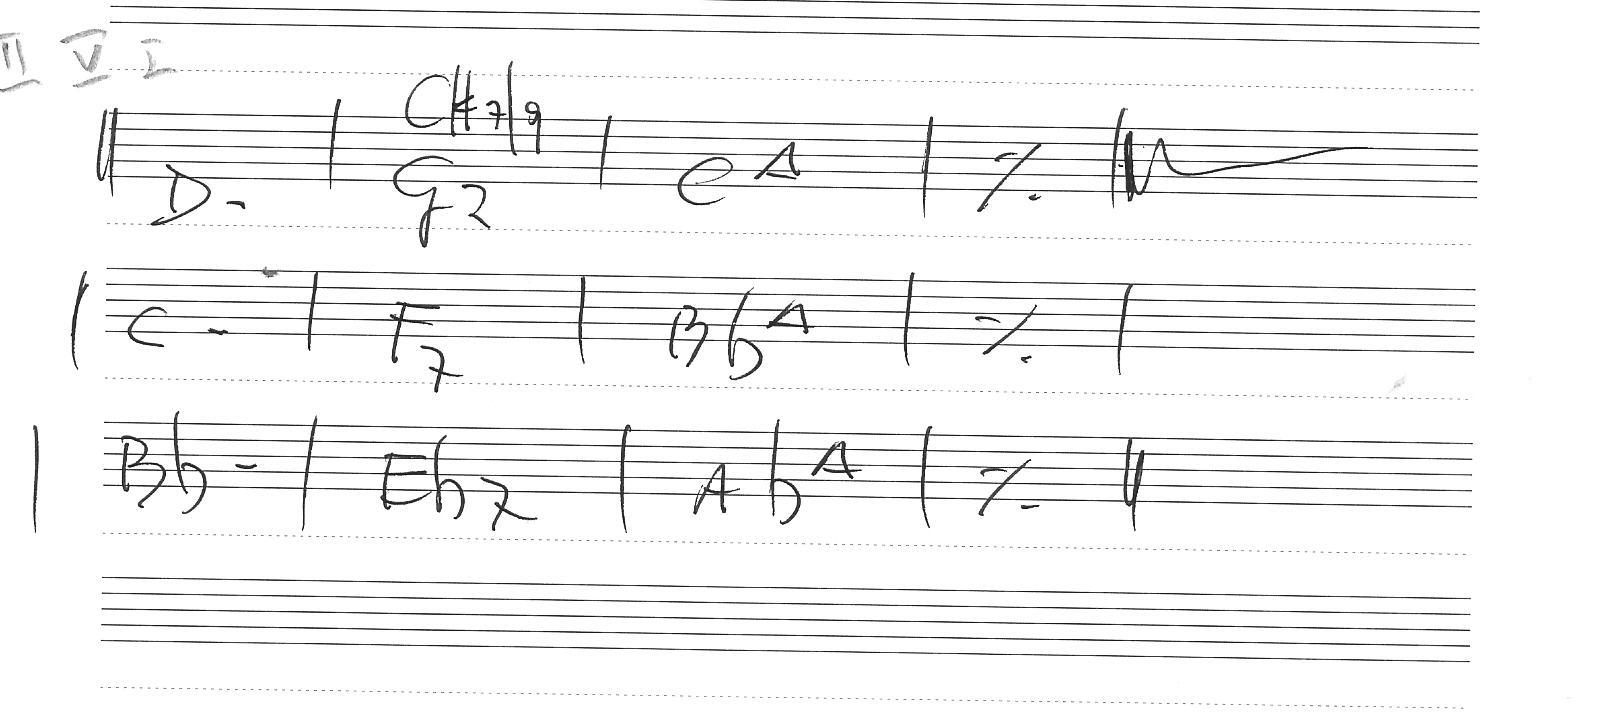 II V I
C#7/9
D- | G7 | C△ | ٪
C- | F7 | Bb△ | ٪
Bb- | Eb7 | Ab△ | ٪